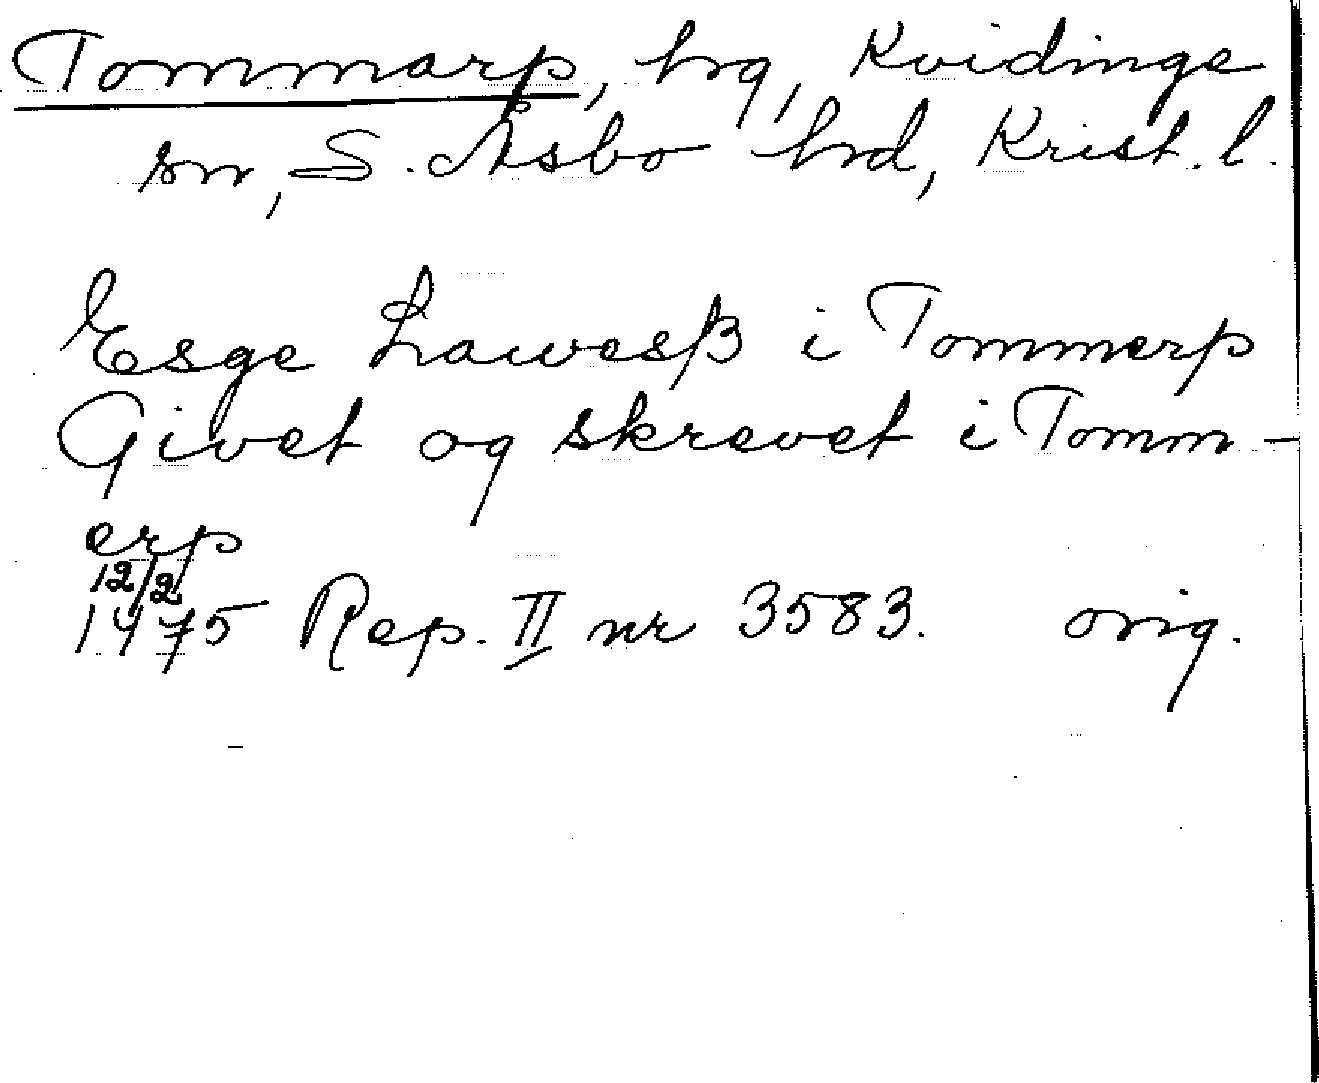 Tommarp, hrg, Kvidinge
sn, S. Åsbo hrd, Krist. l.
Esge Lawesß i Tommerp
Givet og skrevet i Tomm-
erp
12/2
1475 Rep. II nr 3583. orig.